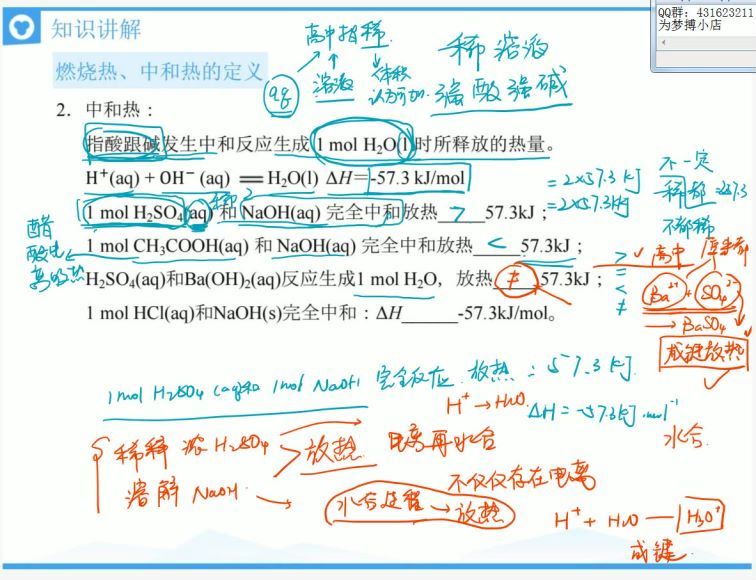 QQ群: 431623211
为梦搏小店
知识讲解
燃烧热、中和热的定义
高中指稀
aq
溶液
体积
认为可加
稀溶液
强酸强碱
2. 中和热：
指酸跟碱发生中和反应生成 1 mol H₂O(l)时所释放的热量。
H⁺(aq) + OH⁻ (aq) ══ H₂O(l) ΔH=-57.3 kJ/mol
1 mol H₂SO₄(aq) 和 NaOH(aq) 完全中和放热 > 57.3kJ；
= 2×57.3 kJ
= 2×57.3kJ
1 mol CH₃COOH(aq) 和 NaOH(aq) 完全中和放热 < 57.3kJ；
醋
酸电
离吸热
H₂SO₄(aq)和Ba(OH)₂(aq)反应生成1 mol H₂O，放热 ≠ 57.3kJ；
1 mol HCl(aq)和NaOH(s)完全中和：ΔH______-57.3kJ/mol。
>
=
<
≠
不一定
稀都 = 57.3
不都稀
高中
Ba²⁺ + SO₄²⁻
→ BaSO₄
成键放热
1 mol H₂SO₄ (aq)和 1mol NaOH 完全反应 放热 = 57.3 kJ
H⁺ → H₂O
ΔH = -57.3kJ·mol⁻¹
稀释 浓 H₂SO₄
放热
电离再水合
水合
溶解 NaOH
水合过程 → 放热
不仅仅存在电离
H⁺ + H₂O — H₃O⁺
成键